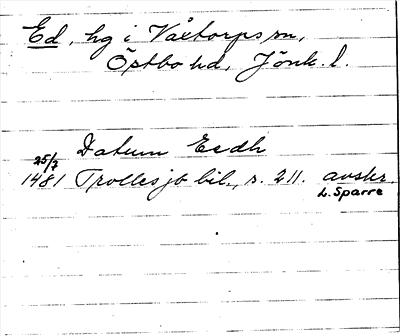 Ed, hg i Våxtorps sn,
Östbo hd, Jönk. l.
Datum Eedh
25/3
1481 Trolles jb bil., s. 211. avskr.
L. Sparre